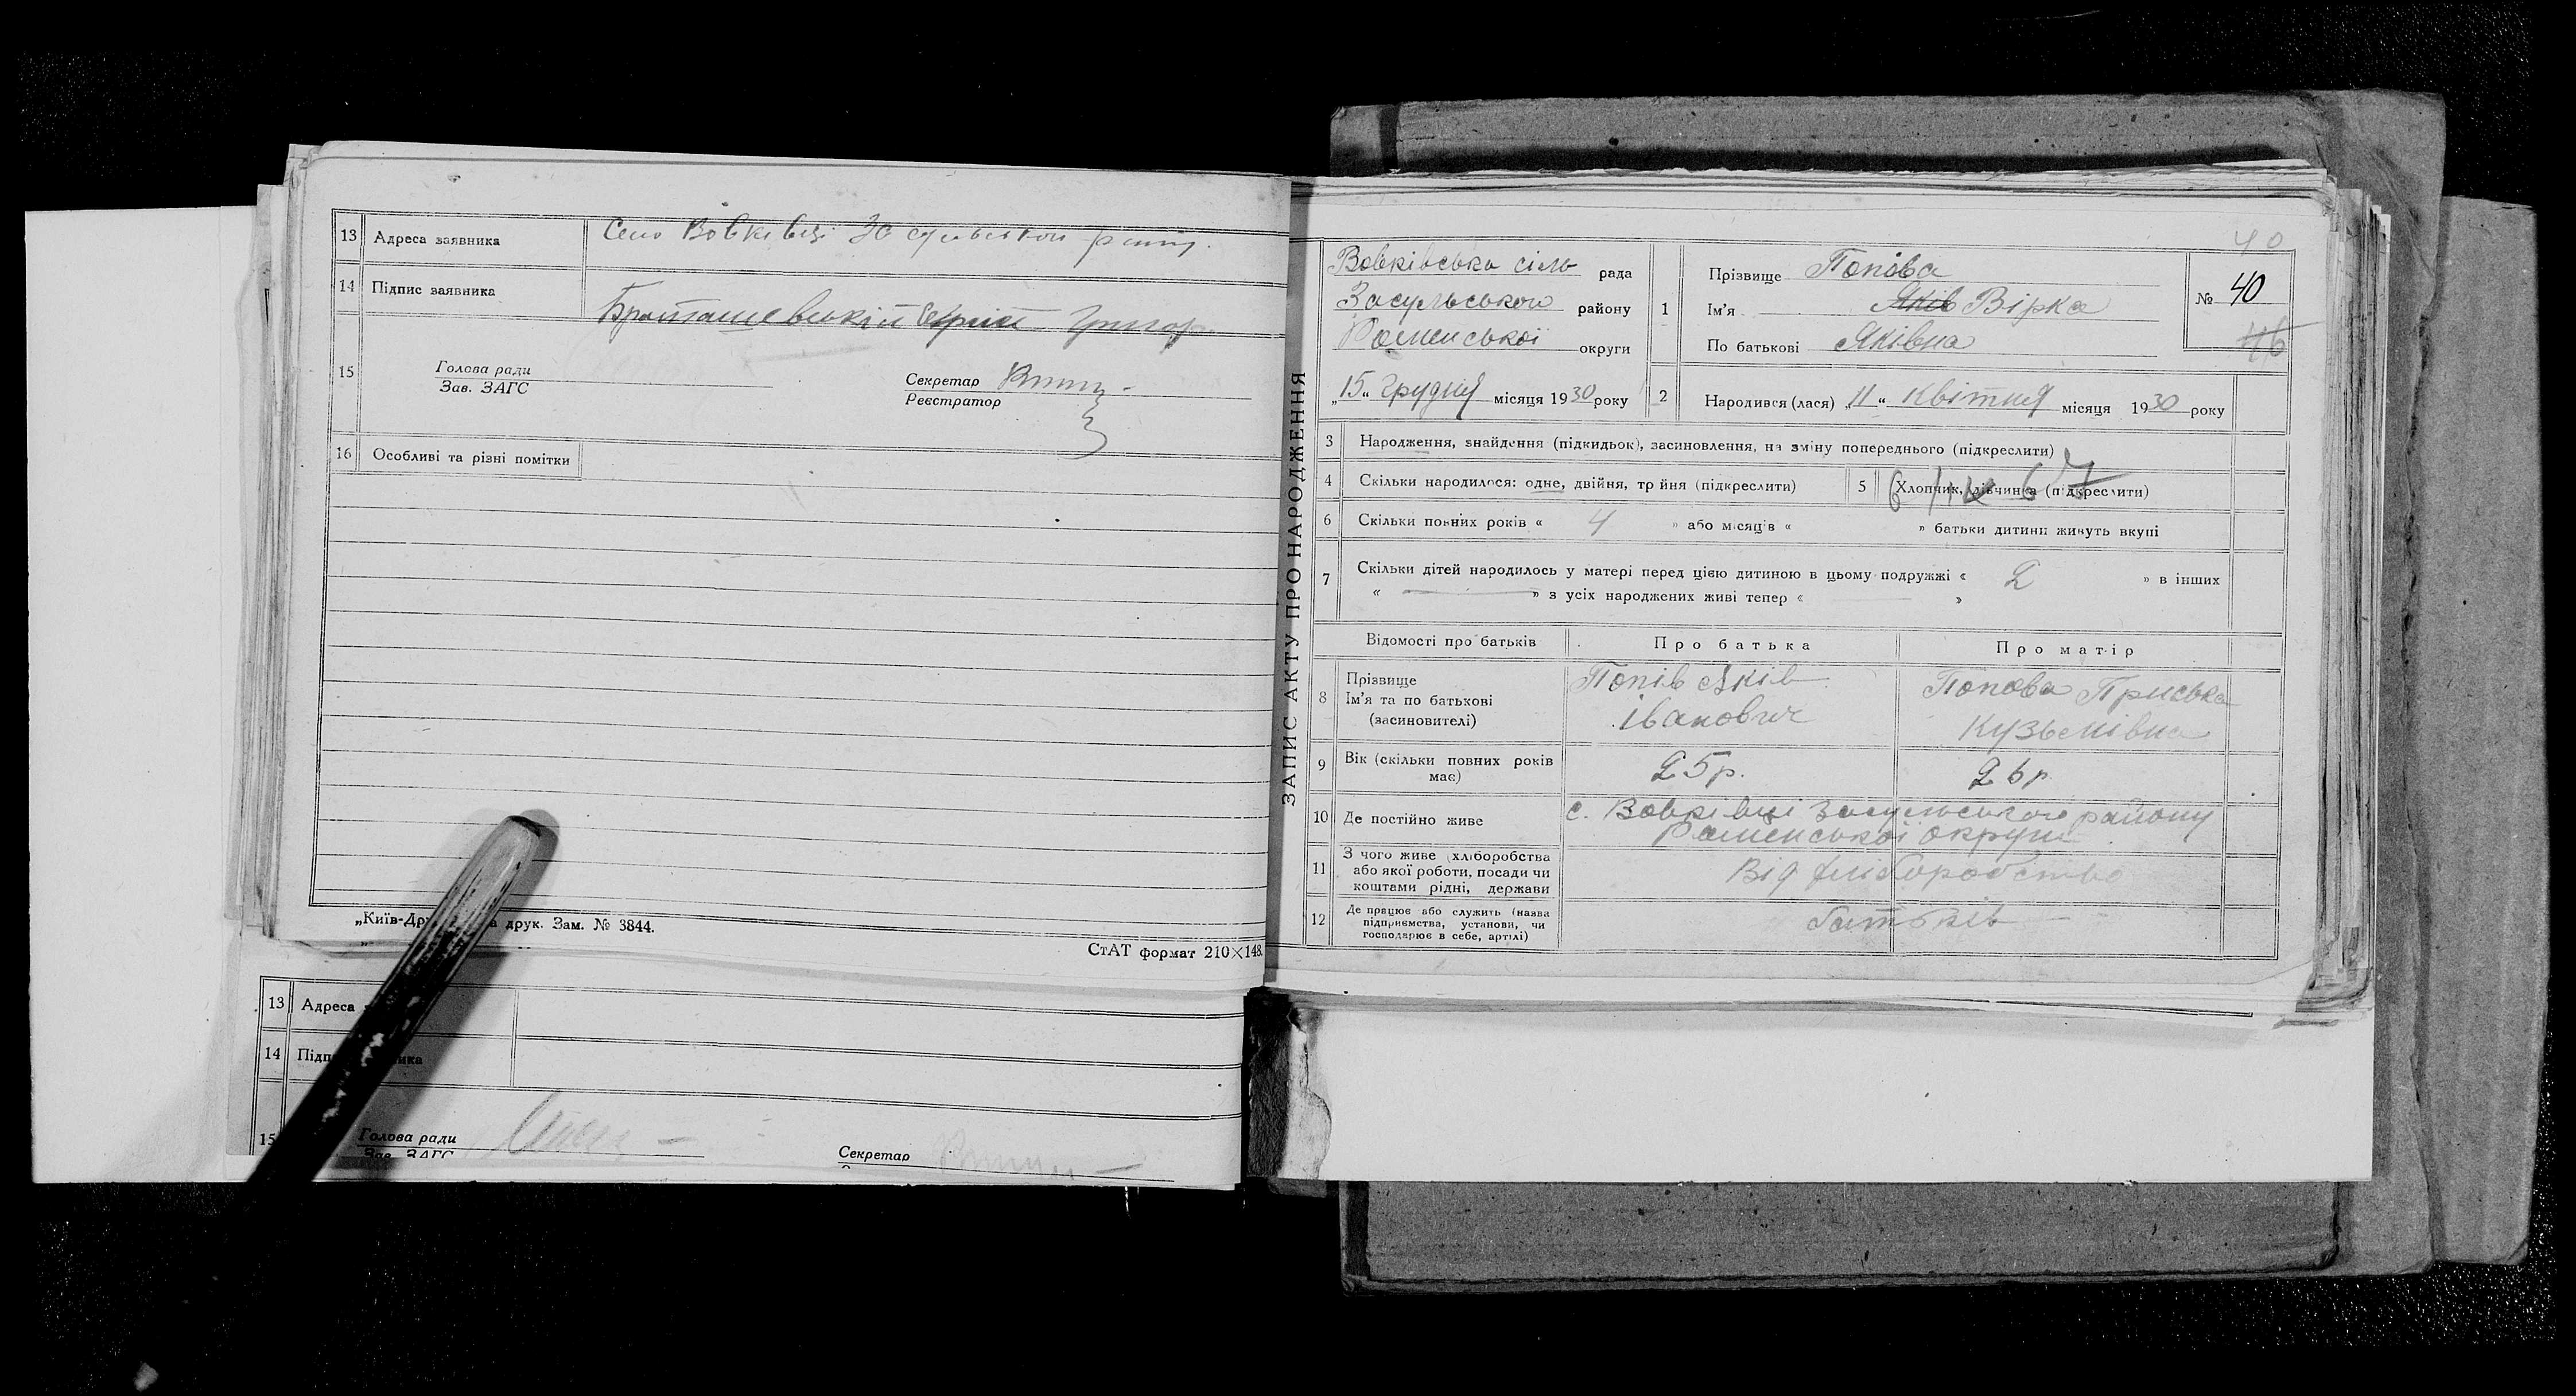 13 Адреса заявника Село Вовківці Засульського рай.
14 Підпис заявника
Браташевський Григор
15 Голова ради
Зав. ЗАГС
Секретар
Реєстратор
16 Особливі та різні помітки
„Київ-Др друк. Зам. № 3844.
СтАТ формат 210×148.
13 Адреса
14
15 Голова ради
Зав. ЗАГС
Секретар
ЗАПИС АКТУ ПРО НАРОДЖЕННЯ
40
Вовківська сіль рада
Засульського району
Роменської округи
„15“ Грудня місяця 1930 року
1 Прізвище Попова
Ім'я Яків Вірка
По батькові Яківна
№ 40
46
2 Народився (лася) „11“ Квітня місяця 1930 року
3 Народження, знайдення (підкидьок), засиновлення, на зміну попереднього (підкреслити)
4 Скільки народилося: одне, двійня, трійня (підкреслити)
5 Хлопчик, дівчинка (підкреслити)
6 Скільки повних років « 4 » або місяців « » батьки дитини живуть вкупі
7 Скільки дітей народилось у матері перед цією дитиною в цьому подружжі « 2 » в інших
« — » з усіх народжених живі тепер « — »
Відомості про батьків Про батька Про матір
8 Прізвище
Ім'я та по батькові
(засиновителі)
Попів Яків
Іванович
Попова Приська
Кузьмівна
9 Вік (скільки повних років
має)
25 р.
26 р.
10 Де постійно живе
с. Вовківці Засульського району
Роменської округи
11 З чого живе (хліборобства
або якої роботи, посади чи
коштами рідні, держави
Від хліборобства
12 Де працює або служить (назва
підприємства, установи, чи
господарює в себе, артілі)